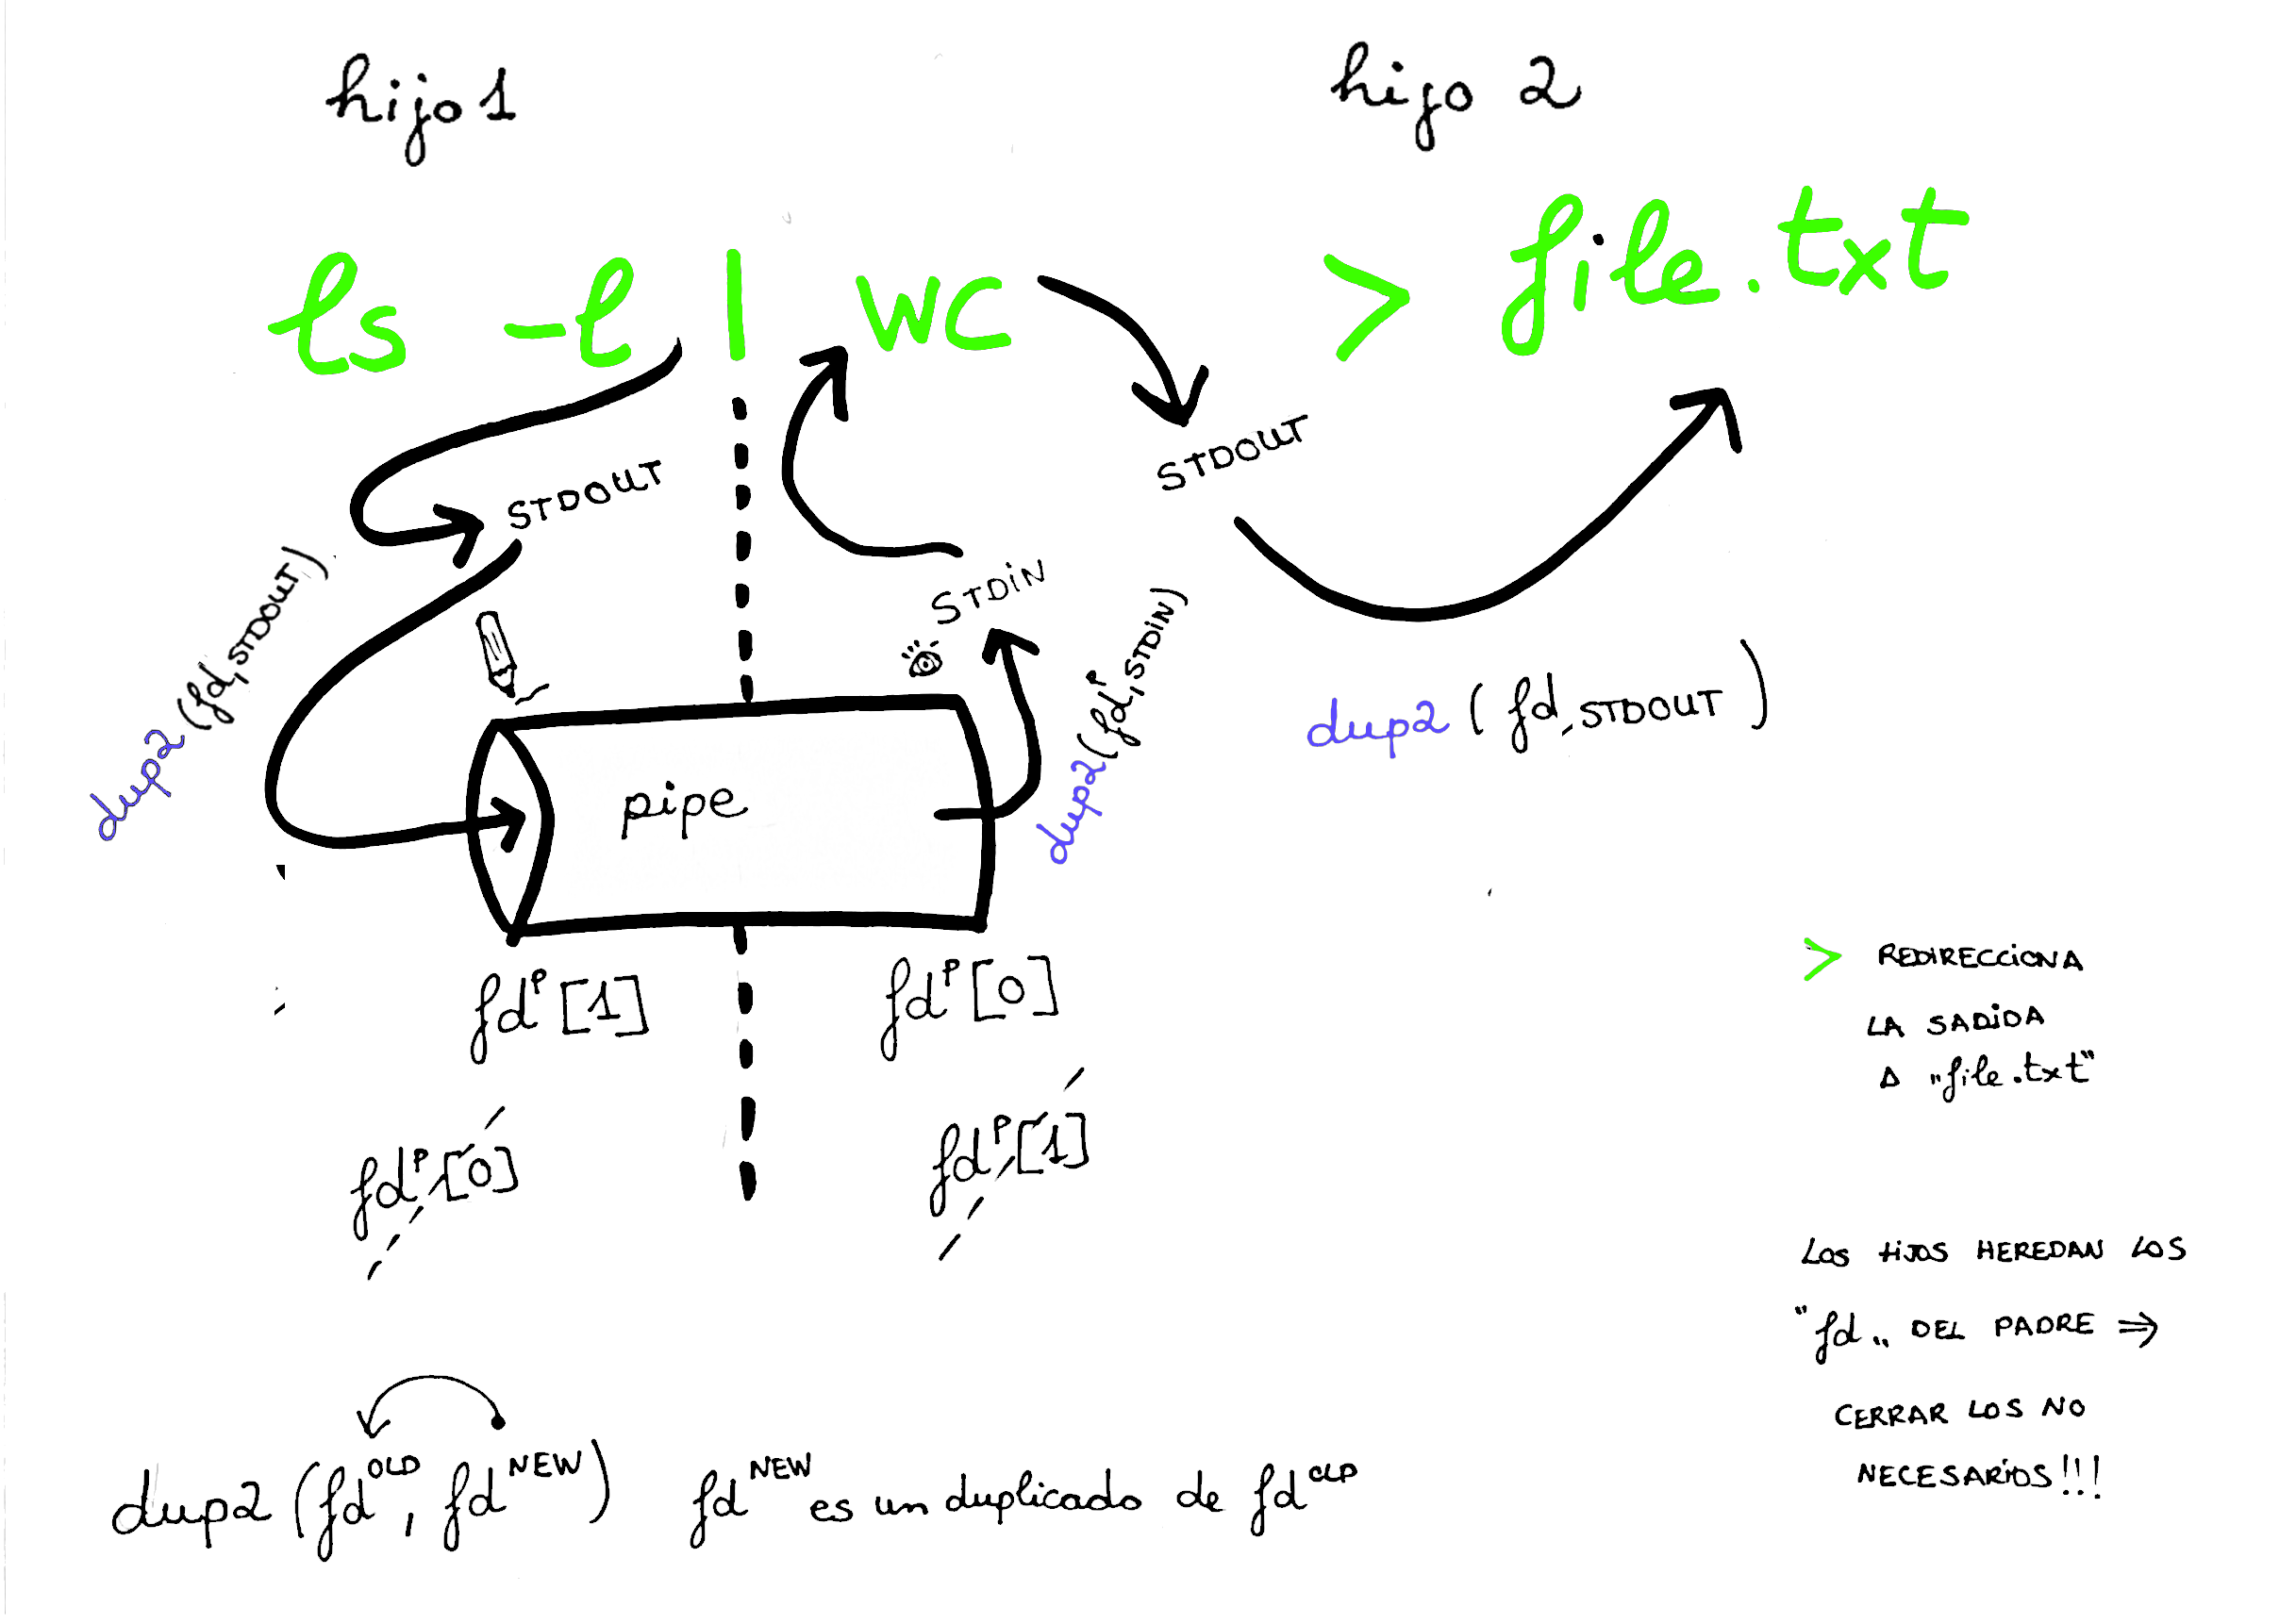 hijo 1
hijo 2
ls -l | wc > file.txt
STDOUT
STDOUT
STDIN
dup2 (fd, STDOUT)
dup2 (fdᴾ, STDIN)
dup2 (fd, STDOUT)
pipe
fdᴾ [1]
fdᴾ [0]
fdᴾ [0]
fdᴾ [1]
> REDIRECCIONA
LA SADIDA
A "file.txt"
LOS HIJOS HEREDAN LOS
"fd" DEL PADRE ⇒
CERRAR LOS NO
NECESARIOS!!!
dup2 (fd^OLD, fd^NEW) fd^NEW es un duplicado de fd^OLD